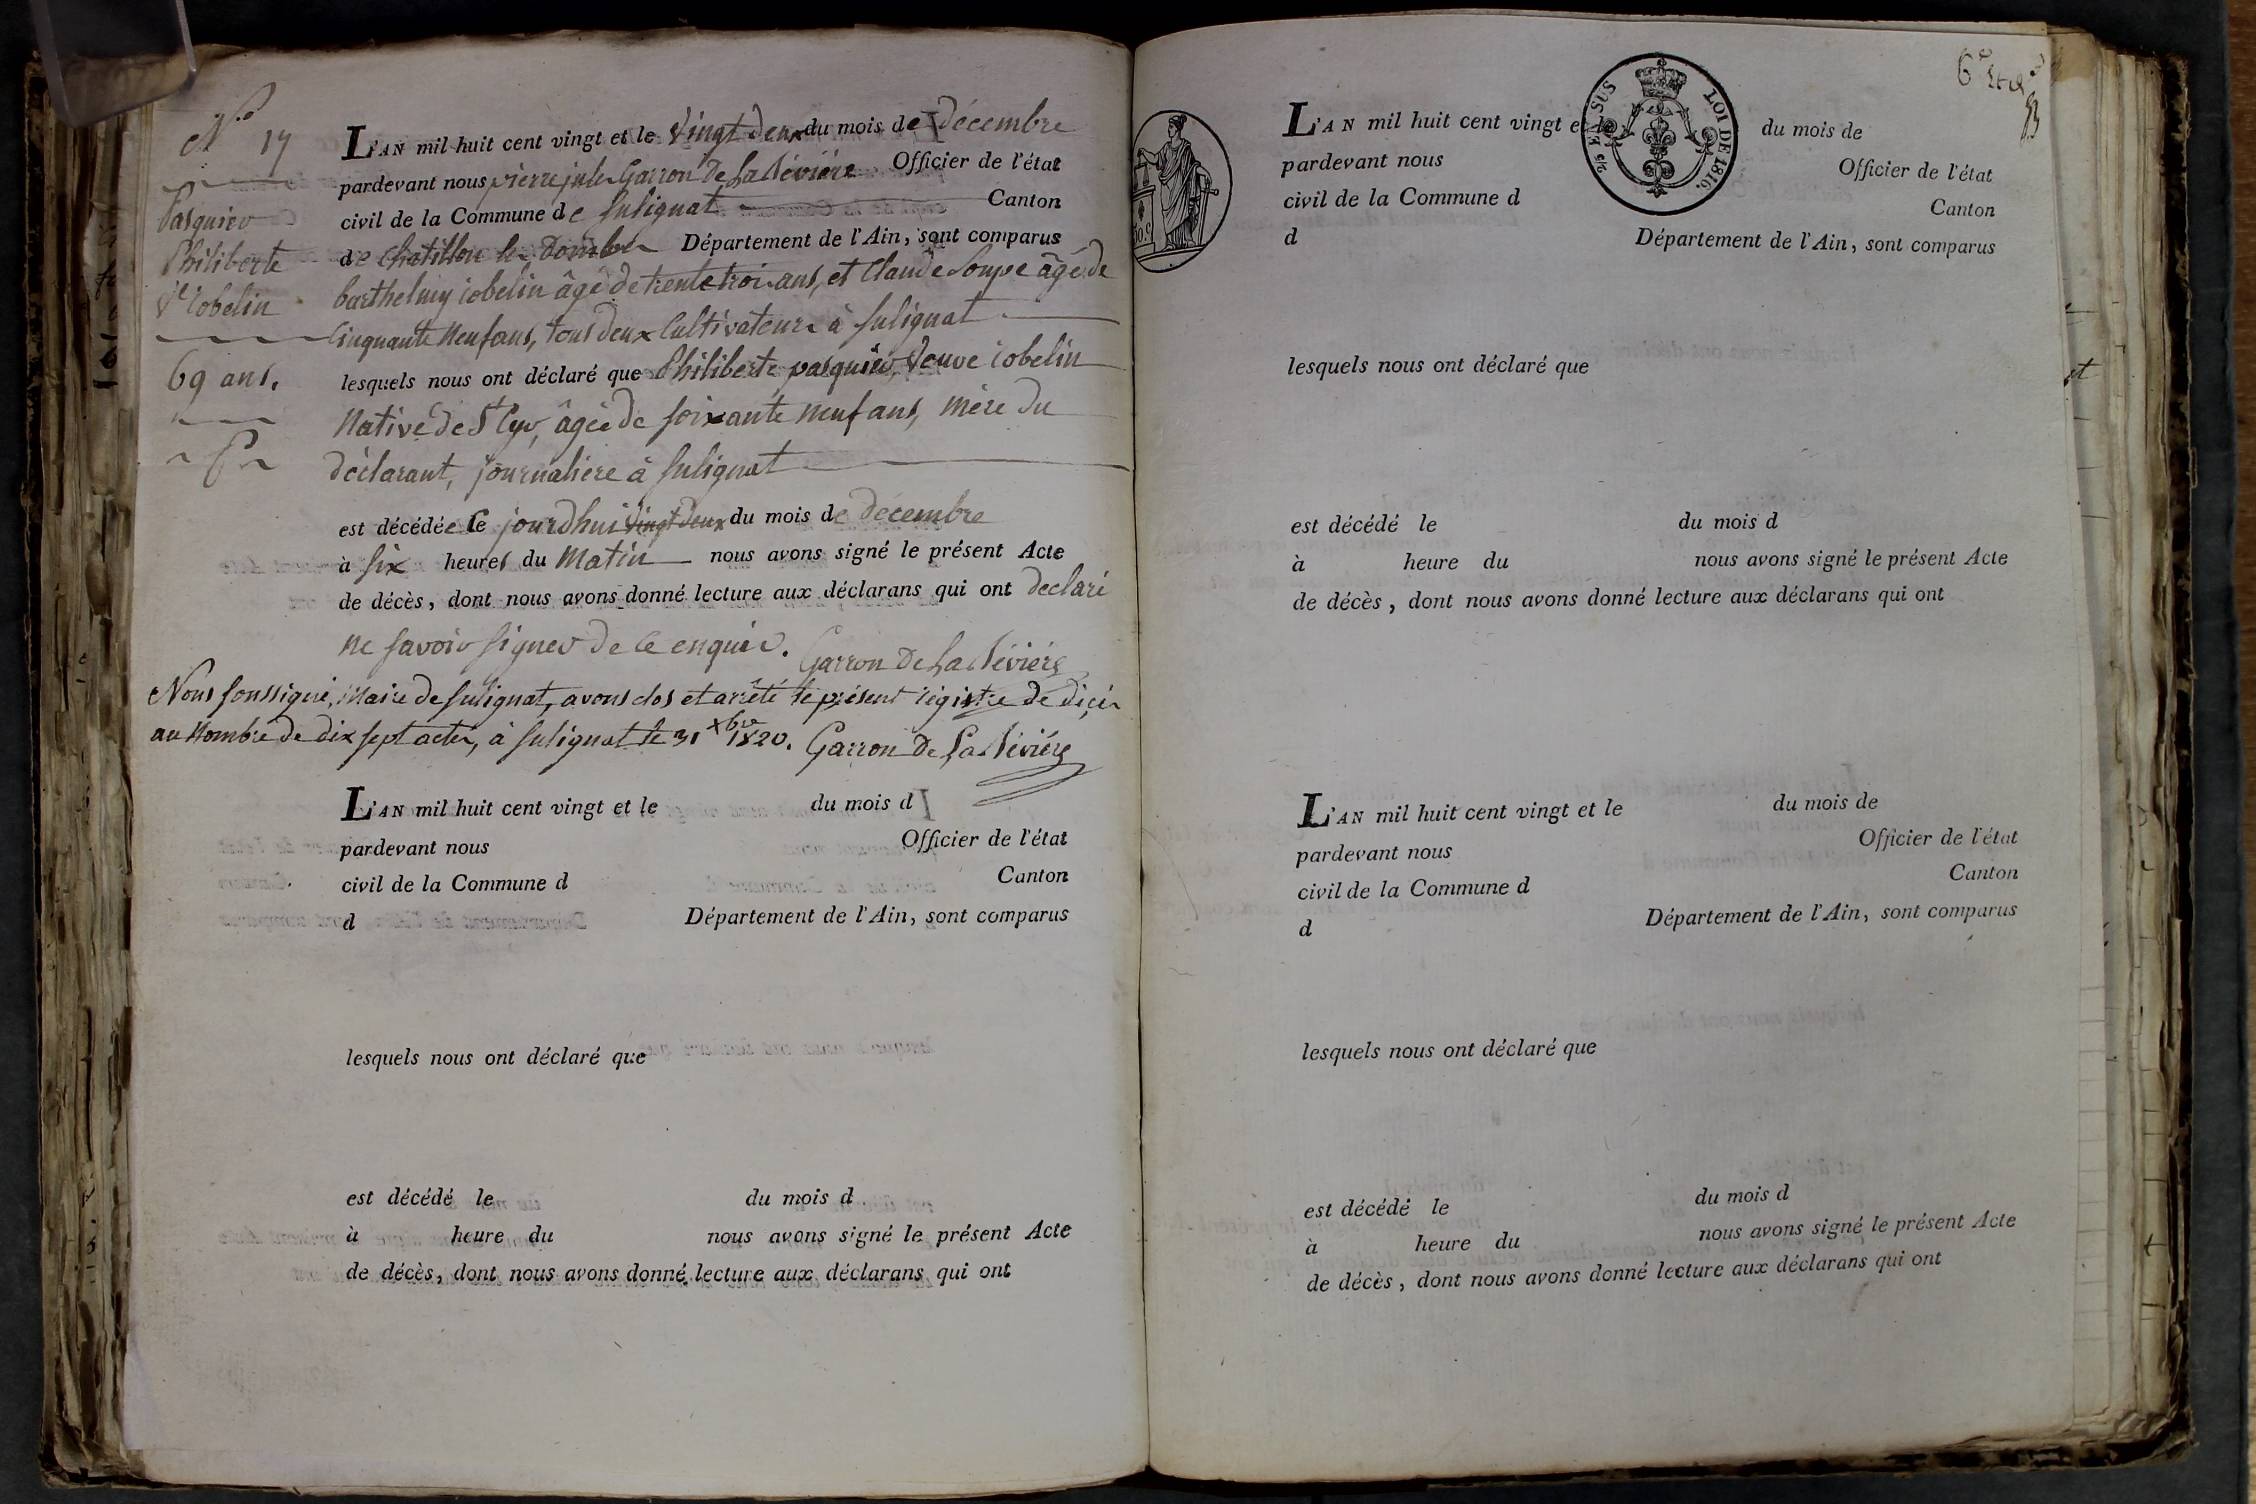 N.° 17
Pasquier
Philiberte
Ve iobelin
69 ans.
L'AN mil huit cent vingt et le vingt deux du mois de décembre
pardevant nous pierre jules Garron De La Bévière Officier de l'état
civil de la Commune de Sulignat Canton
de chatillon les Dombes Département de l'Ain, sont comparus
barthelmy iobelin âgé de trente trois ans, et Claude Soupe âgé de
Cinquante Neuf ans, tous deux Cultivateurs à Sulignat
lesquels nous ont déclaré que Philiberte pasquier, Veuve iobelin
Native de St Cyr, âgée de soixante neuf ans, mère du
déclarant, journalière à Sulignat
est décédée le jourdhui vingt deux du mois de décembre
à six heures du Matin nous avons signé le présent Acte
de décès, dont nous avons donné lecture aux déclarans qui ont declaré
ne savoir signer de ce enquis. Garron De La Bévière
Nous soussigné, Maire de Sulignat, avons clos et arrêté le présent régistre de décès
au Nombre de dix sept actes, à Sulignat le 31 xbre 1820. Garron De La Bévière
L'AN mil huit cent vingt et le du mois d
pardevant nous Officier de l'état
civil de la Commune d Canton
d Département de l'Ain, sont comparus
lesquels nous ont déclaré que
est décédé le du mois d
à heure du nous avons signé le présent Acte
de décès, dont nous avons donné lecture aux déclarans qui ont
LOI DE 1816.
L'AN mil huit cent vingt et le du mois de
pardevant nous Officier de l'état
civil de la Commune d Canton
d Département de l'Ain, sont comparus
lesquels nous ont déclaré que
est décédé le du mois d
à heure du nous avons signé le présent Acte
de décès, dont nous avons donné lecture aux déclarans qui ont
L'AN mil huit cent vingt et le du mois de
pardevant nous Officier de l'état
civil de la Commune d Canton
d Département de l'Ain, sont comparus
lesquels nous ont déclaré que
est décédé le du mois d
à heure du nous avons signé le présent Acte
de décès, dont nous avons donné lecture aux déclarans qui ont